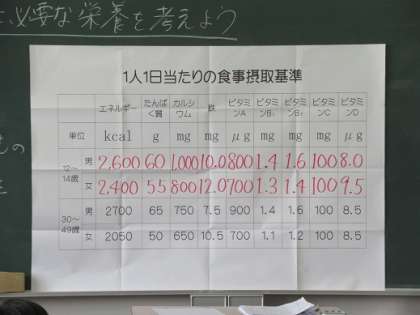 必要な栄養を考えよう
1人1日当たりの食事摂取基準
エネルギー たんぱく質 カルシウム 鉄 ビタミンA ビタミンB₁ ビタミンB₂ ビタミンC ビタミンD
単位 kcal g mg mg μg mg mg mg μg
12〜14歳 男 2,600 60 1,000 10.0 800 1.4 1.6 100 8.0
女 2,400 55 800 12.0 700 1.3 1.4 100 9.5
30〜49歳 男 2700 65 750 7.5 900 1.4 1.6 100 8.5
女 2050 50 650 10.5 700 1.1 1.2 100 8.5